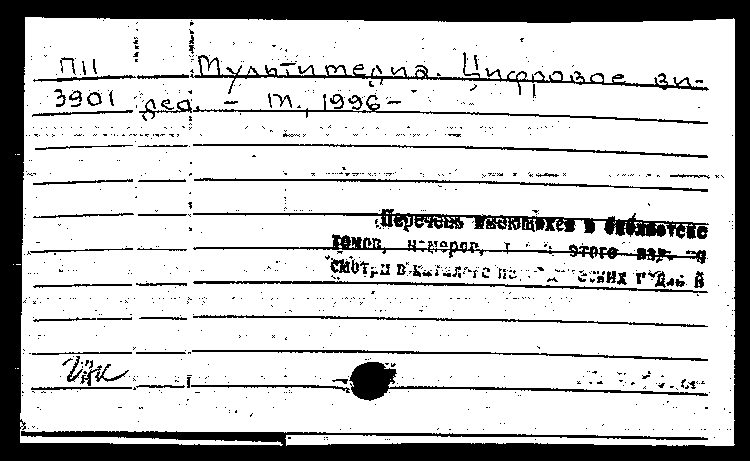 П11 Мультимедиа. Цифровое ви-
3901 део. - М., 1996-
Перечень имеющихся в библиотеке
томов, номеров, этого
смотри в каталоге